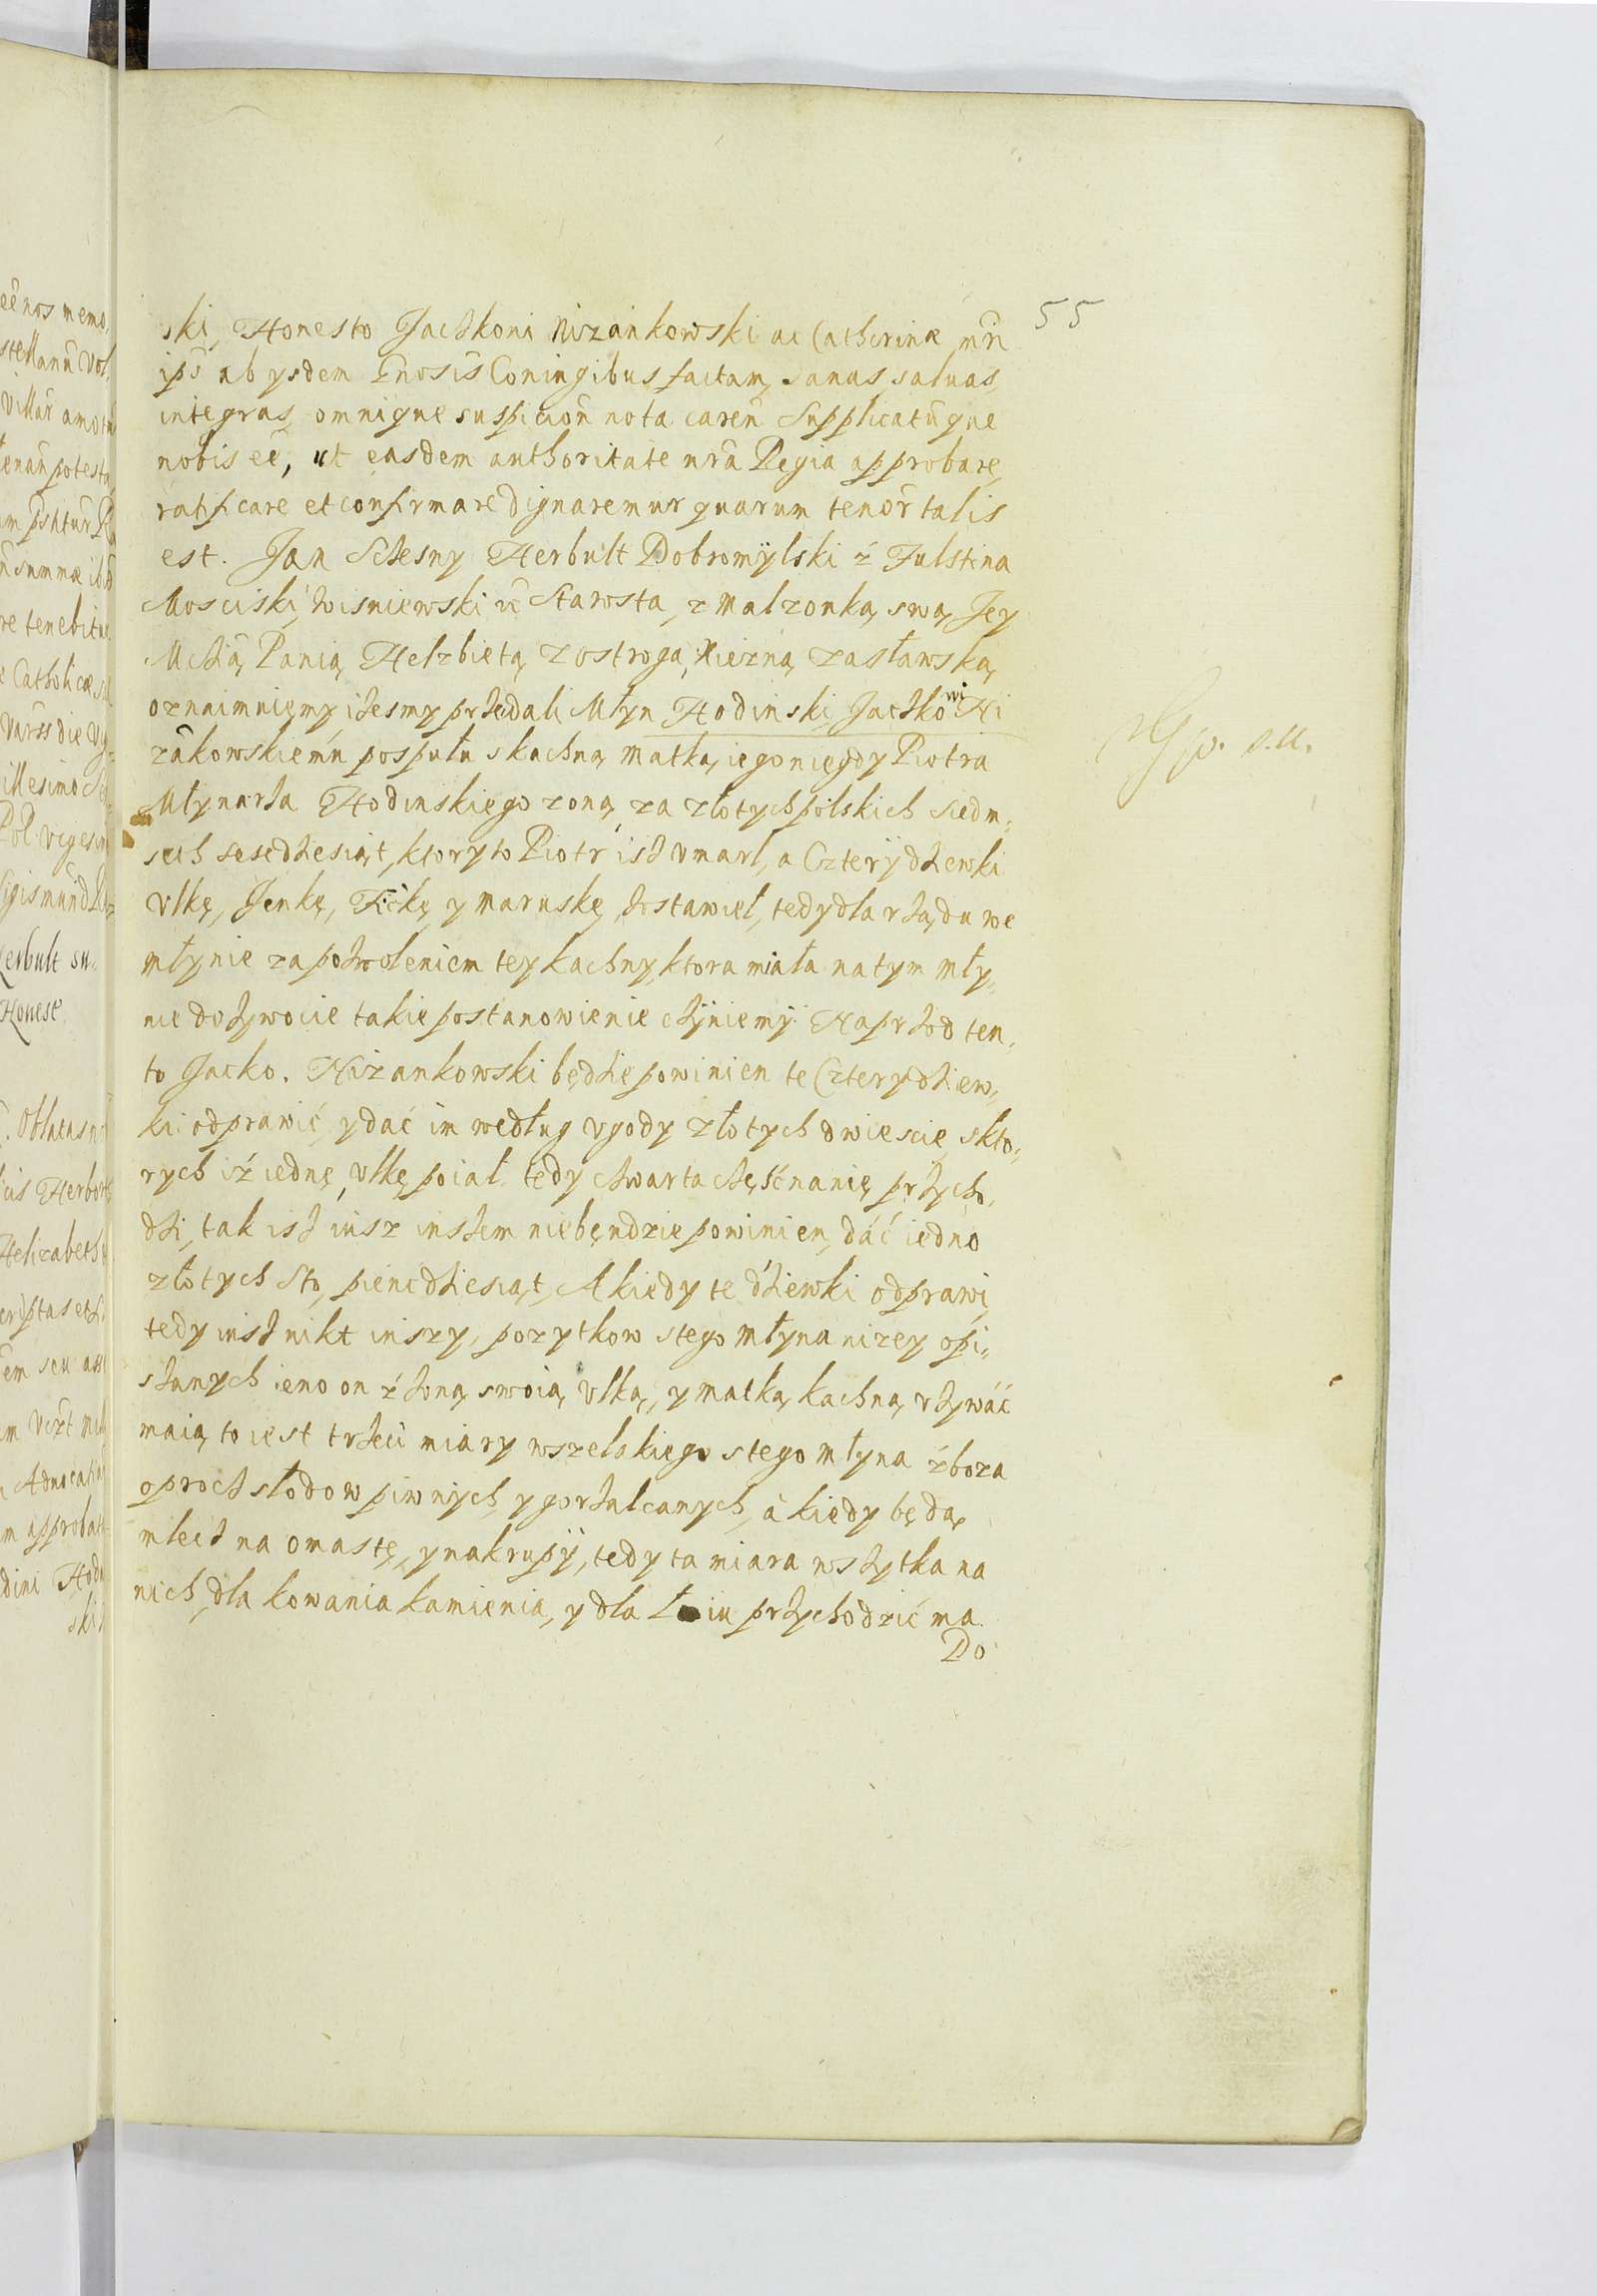 55
ski, Honesto Jaczkoni Nizankowski ac Catherinæ mri
ipō ab ysdem Gnosis Coniugibus factam, sanas, saluas,
integras, omnique suspicioñ nota careñ Supplicatūque
nobis eē, ut easdem authoritate nrā Regia approbare,
ratificare et confirmare dignaremur quarum tenor talis
est. Jan Sczesny Herbult Dobromÿlski z Fulstina
Mosciski, Wisniewski ec Starosta, z Malzonką swą, Jey
Mczią Panią Helzbietą z ostroga, Xiezną zasławską,
oznaimuięmy iżesmy przedali Młyn Hodinski, Jaczkowi Ni
zākowskiemu pospułu s kachną matką, iego niegdy Piotra
Młynarza Hodinskiego zoną, za złotych polskich siedm,
seth sesedziesiąt, ktory to Piotr isz vmarł, a Czterÿ dziewki
Vlkę, Jenkę, Fickę y maruskę, zostawieł, tedy dla rządu we
młynie za pozwoleniem tey kachny, ktora miała na tym mły,
nie dozywocie takie postanowienie czÿniemÿ Naprzod ten,
to Jacko. Niżankowski będzie powinien te Cztery dziew,
ki odprawić, y dać im według vgody złotych dwieście, s kto,
rych iż iednę, Vlkę poiał tedy czwarta częśc na nię przycho,
dzi, tak isz iusz inszem niebęndzie powinien, dáć iędno
złotych Sto, piencdziesiąt, A kiedy te dziewki odprawi,
tedy iusz nikt inszy, pozytkow s tego młyna nizey opi,
szanych ieno on z żoną swoią, Vlką, y matką kachną, vżywáć
maią, to iest trzeci miary wszelakiego s tego młyna zboza
oprocz słodow piwnÿch, y gorzalcanych, a kiedy będą,
mlecz na omastę, y na krupÿ, tedy ta miara wszytka na
nich, dla kowania kamienia, y dla łoiu przychodzić ma.
Do